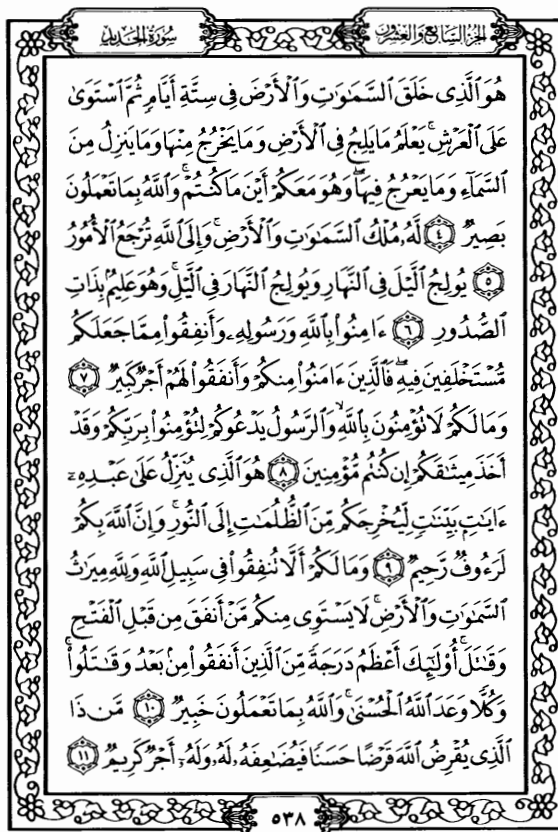 الجزء السابع والعشرون
سورة الحديد
هُوَ ٱلَّذِى خَلَقَ ٱلسَّمَٰوَٰتِ وَٱلْأَرْضَ فِى سِتَّةِ أَيَّامٍ ثُمَّ ٱسْتَوَىٰ
عَلَى ٱلْعَرْشِ ۚ يَعْلَمُ مَا يَلِجُ فِى ٱلْأَرْضِ وَمَا يَخْرُجُ مِنْهَا وَمَا يَنزِلُ مِنَ
ٱلسَّمَآءِ وَمَا يَعْرُجُ فِيهَا ۖ وَهُوَ مَعَكُمْ أَيْنَ مَا كُنتُمْ ۚ وَٱللَّهُ بِمَا تَعْمَلُونَ
بَصِيرٌ ﴿٤﴾ لَّهُۥ مُلْكُ ٱلسَّمَٰوَٰتِ وَٱلْأَرْضِ ۚ وَإِلَى ٱللَّهِ تُرْجَعُ ٱلْأُمُورُ
﴿٥﴾ يُولِجُ ٱلَّيْلَ فِى ٱلنَّهَارِ وَيُولِجُ ٱلنَّهَارَ فِى ٱلَّيْلِ ۚ وَهُوَ عَلِيمٌۢ بِذَاتِ
ٱلصُّدُورِ ﴿٦﴾ ءَامِنُوا۟ بِٱللَّهِ وَرَسُولِهِۦ وَأَنفِقُوا۟ مِمَّا جَعَلَكُم
مُّسْتَخْلَفِينَ فِيهِ ۖ فَٱلَّذِينَ ءَامَنُوا۟ مِنكُمْ وَأَنفَقُوا۟ لَهُمْ أَجْرٌ كَبِيرٌ ﴿٧﴾
وَمَا لَكُمْ لَا تُؤْمِنُونَ بِٱللَّهِ ۙ وَٱلرَّسُولُ يَدْعُوكُمْ لِتُؤْمِنُوا۟ بِرَبِّكُمْ وَقَدْ
أَخَذَ مِيثَٰقَكُمْ إِن كُنتُم مُّؤْمِنِينَ ﴿٨﴾ هُوَ ٱلَّذِى يُنَزِّلُ عَلَىٰ عَبْدِهِۦٓ
ءَايَٰتٍۭ بَيِّنَٰتٍ لِّيُخْرِجَكُم مِّنَ ٱلظُّلُمَٰتِ إِلَى ٱلنُّورِ ۚ وَإِنَّ ٱللَّهَ بِكُمْ
لَرَءُوفٌ رَّحِيمٌ ﴿٩﴾ وَمَا لَكُمْ أَلَّا تُنفِقُوا۟ فِى سَبِيلِ ٱللَّهِ وَلِلَّهِ مِيرَٰثُ
ٱلسَّمَٰوَٰتِ وَٱلْأَرْضِ ۚ لَا يَسْتَوِى مِنكُم مَّنْ أَنفَقَ مِن قَبْلِ ٱلْفَتْحِ
وَقَٰتَلَ ۚ أُو۟لَٰٓئِكَ أَعْظَمُ دَرَجَةً مِّنَ ٱلَّذِينَ أَنفَقُوا۟ مِنۢ بَعْدُ وَقَٰتَلُوا۟ ۚ
وَكُلًّا وَعَدَ ٱللَّهُ ٱلْحُسْنَىٰ ۚ وَٱللَّهُ بِمَا تَعْمَلُونَ خَبِيرٌ ﴿١٠﴾ مَّن ذَا
ٱلَّذِى يُقْرِضُ ٱللَّهَ قَرْضًا حَسَنًا فَيُضَٰعِفَهُۥ لَهُۥ وَلَهُۥٓ أَجْرٌ كَرِيمٌ ﴿١١﴾
٥٣٨